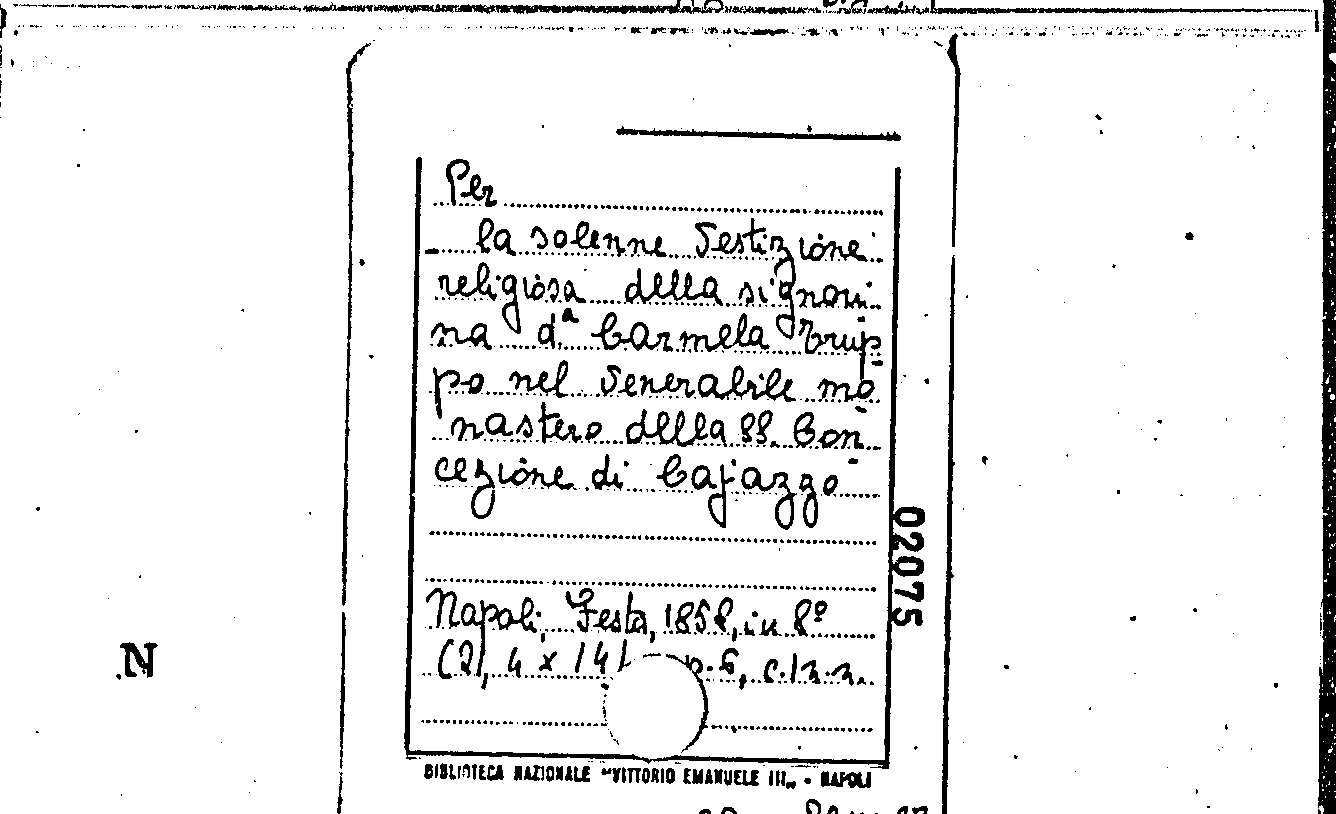 Per
la solenne Vestizione
religiosa della signori-
na d.ª Carmela Trup-
po nel Venerabile mo-
nastero della SS. Con-
cezione di Cajazzo
Napoli, Festa, 1858, in 8º
(21,4 x 14) p. 6, c. 1 n.n.
02075
N
BIBLIOTECA NAZIONALE "VITTORIO EMANUELE III„ - NAPOLI